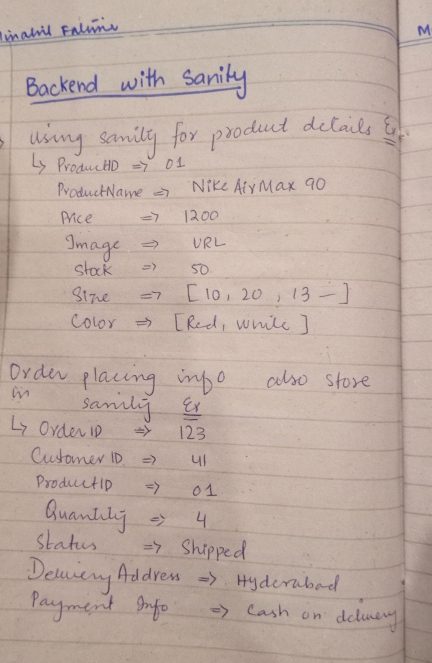 Minahil Fatima
M
Backend with Sanity
using sanity for product details Ex
↳ ProductID => 01
ProductName => Nike AirMax 90
Price => 1200
Image => URL
Stock => 50
Size => [10, 20, 13 —]
Color => [Red, white]
Order placing info also store
in sanity Ex
↳ Order ID => 123
Customer ID => 41
ProductID => 01
Quantity => 4
Status => Shipped
Delivery Address => Hyderabad
Payment Info => Cash on delivery